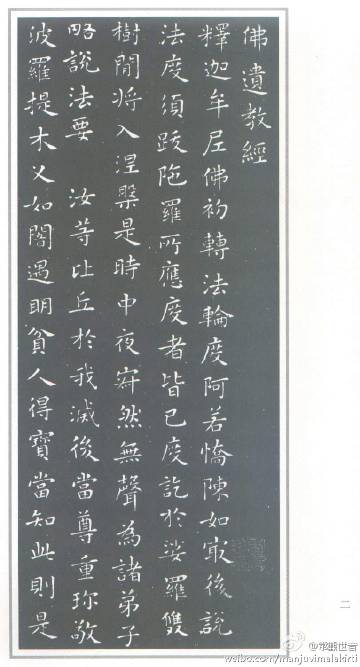 佛遺教經
釋迦牟尼佛初轉法輪度阿若憍陳如㝡後說
法度須跋陁羅所應度者皆已度訖於娑羅雙
樹間將入涅槃是時中夜寂然無聲為諸弟子
略說法要　汝等比丘於我滅後當尊重珎敬
波羅提木乂如闇遇明貧人得寶當知此則是
二
@常觀世音
weibo.com/manjuvimalakirti